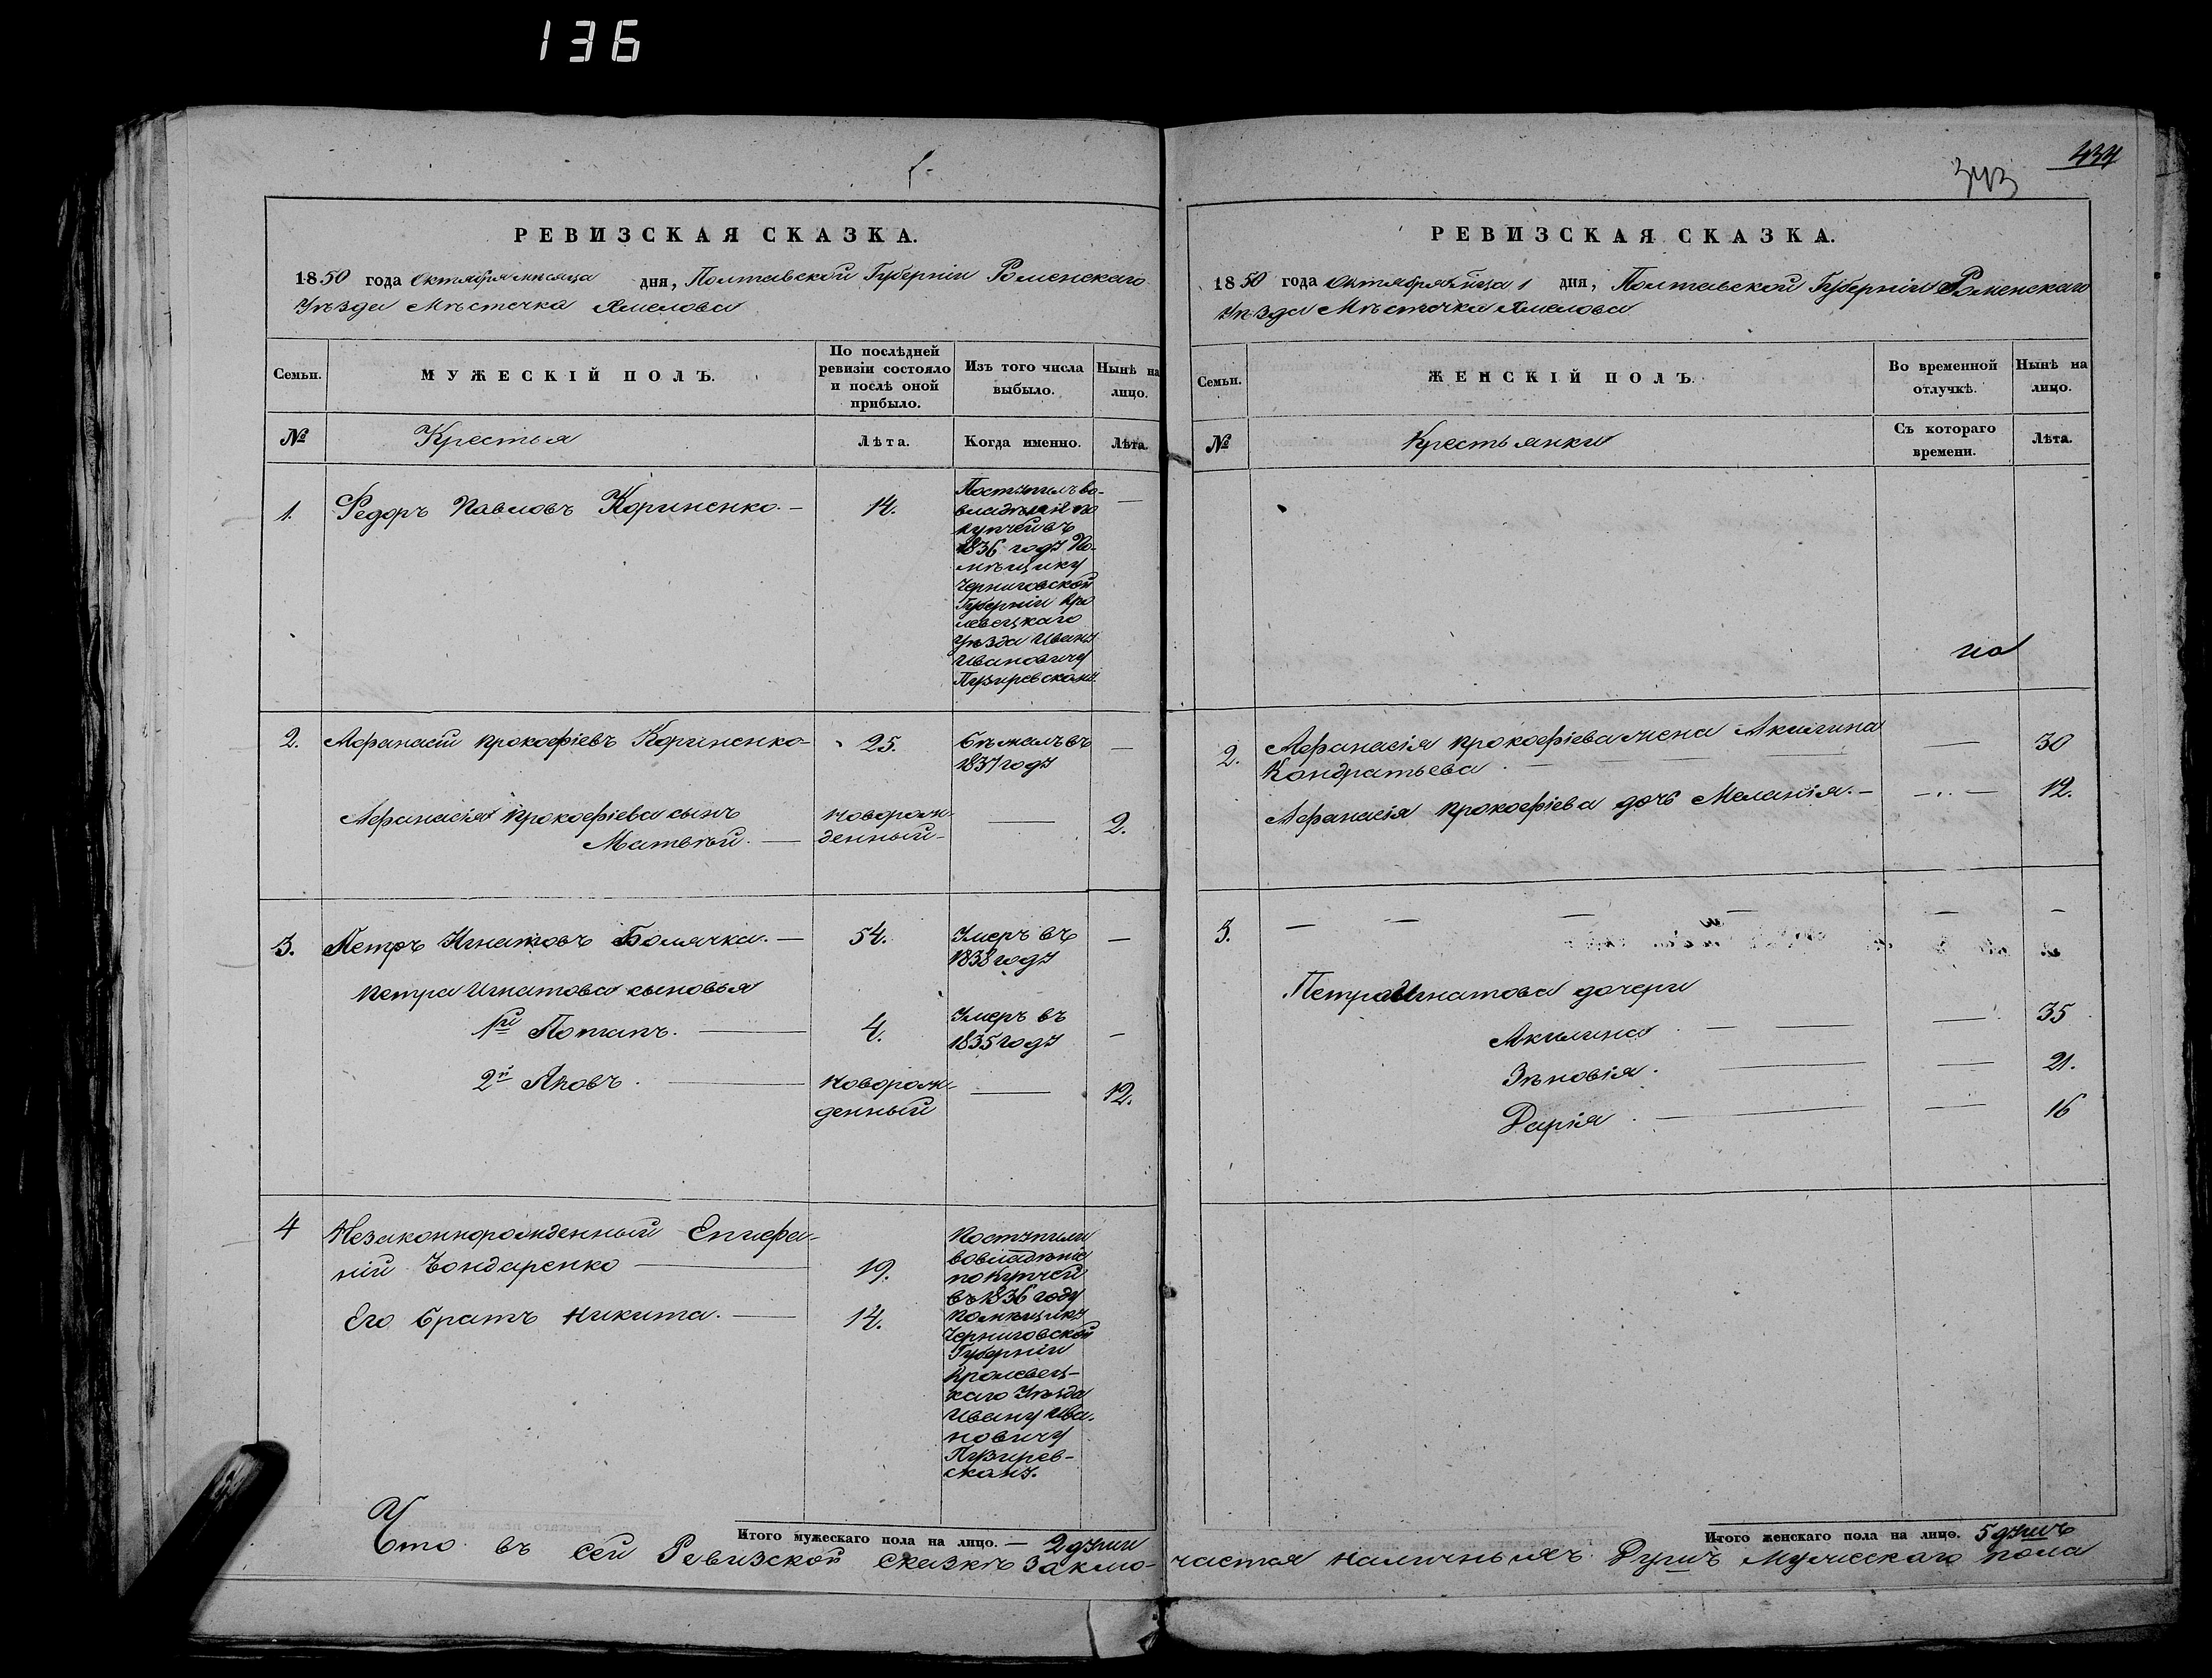 136
РЕВИЗСКАЯ СКАЗКА.
1850 года Октября мѣсяца дня, Полтавской Губерніи Роменскаго
Уѣзда Мѣстечка Хмелова
Семьи.
МУЖЕСКІЙ ПОЛЪ.
По послѣдней
ревизіи состояло
и послѣ оной
прибыло.
Изъ того числа
выбыло.
Нынѣ на
лицо.
№
Крестья
Лѣта.
Когда именно.
Лѣта.
1. Федоръ Павловъ Кориненко. — 14. —
Поступилъ во
владѣніе по
купчей въ
1836 году По-
мѣщику
Черниговской
Губерніи Кро
левецкаго
Уѣзда Ивану
Ивановичу
Пузиревскому.
2. Афанасій Прокофіевъ Кориненко — 25. Бѣжалъ въ —
1837 году
Афанасія Прокофіева сынъ новорож- — 2.
Матвѣй. — денный —
3. Петръ Игнатовъ Болячка. — 54. Умеръ въ —
1838 году
Петра Игнатова сыновья
1й Потапъ. — 4. Умеръ въ —
1835 году
2й Яковъ. — новорож- — 12.
денный
4 Незаконнорожденный Епифа-
ній Бондаренко — 19.
Его братъ Никита. — 14.
Поступили
во владѣніе
по купчей
въ 1836 году
помѣщику
Черниговской
Губерніи
Кролевец-
каго Уѣзда
Ивану Ива-
новичу
Пузирев-
скому.
Итого мужескаго пола на лицо. — 2 души
434
343
РЕВИЗСКАЯ СКАЗКА.
1850 года Октября 1 дня, Полтавской Губерніи Роменскаго
Уѣзда Мѣстечка Хмелова
Семьи.
ЖЕНСКІЙ ПОЛЪ.
Во временной
отлучкѣ.
Нынѣ на
лицо.
№
Крестьянки
Съ котораго
времени.
Лѣта.
2. Афанасія Прокофіева жена Акилина — 30
Кондратьева. —
Афанасія Прокофіева дочь Меланія. — — 12.
3. — — — — — —
Петра Игнатова дочери
Акилина. — — 35
Зѣновія. — — 21.
Дарія. — — 16
Итого женскаго пола на лицо. 5 душъ
Что въ сей Ревизской сказкѣ заклю- чается наличныхъ Душъ Мужескаго пола